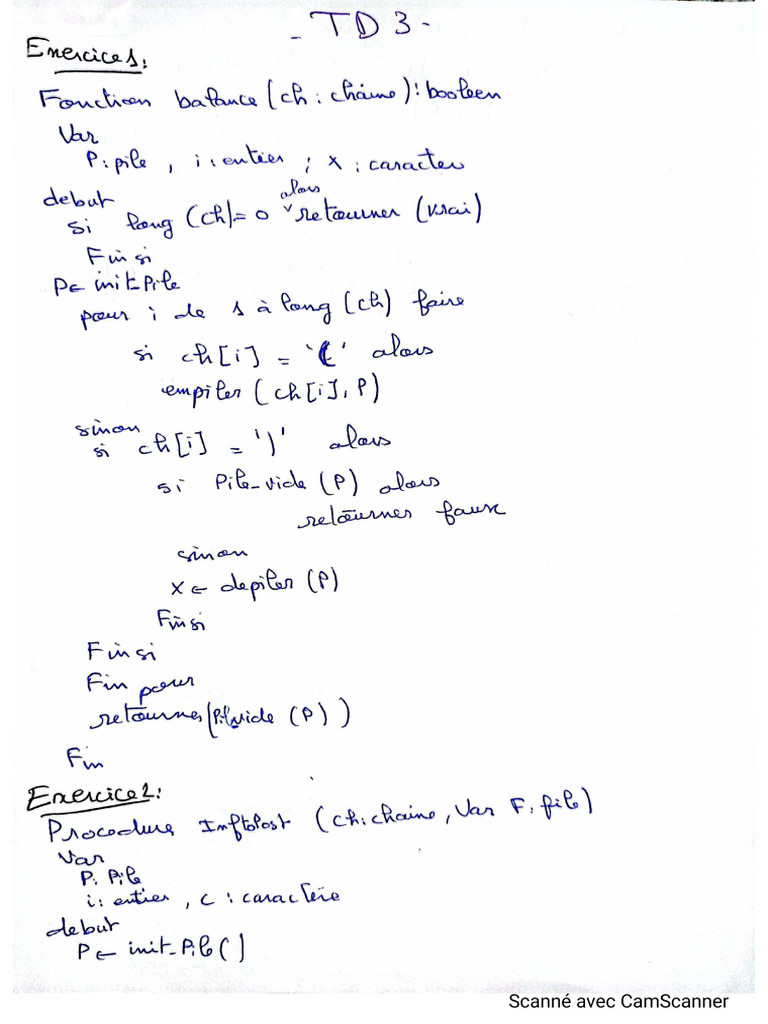 - TD 3 -
Exercice 1:
Fonction balance (ch : chaine) : booleen
Var
P : pile , i : entier ; x : caracter
debut
si long (ch) = 0 alors retourner (vrai)
Fin si
P ← init_Pile
pour i de 1 à long (ch) faire
si ch[i] = '(' alors
empiler (ch[i], P)
sinon
si ch[i] = ')' alors
si Pile_vide (P) alors
retourner faux
sinon
x ← depiler (P)
Fin si
Fin si
Fin pour
retourner (Pile_vide (P))
Fin
Exercice 2:
Procedure InftoPost (ch : chaine, Var F : file)
Var
P : Pile
i : entier , c : caractère
debut
P ← init_Pile ()
Scanné avec CamScanner